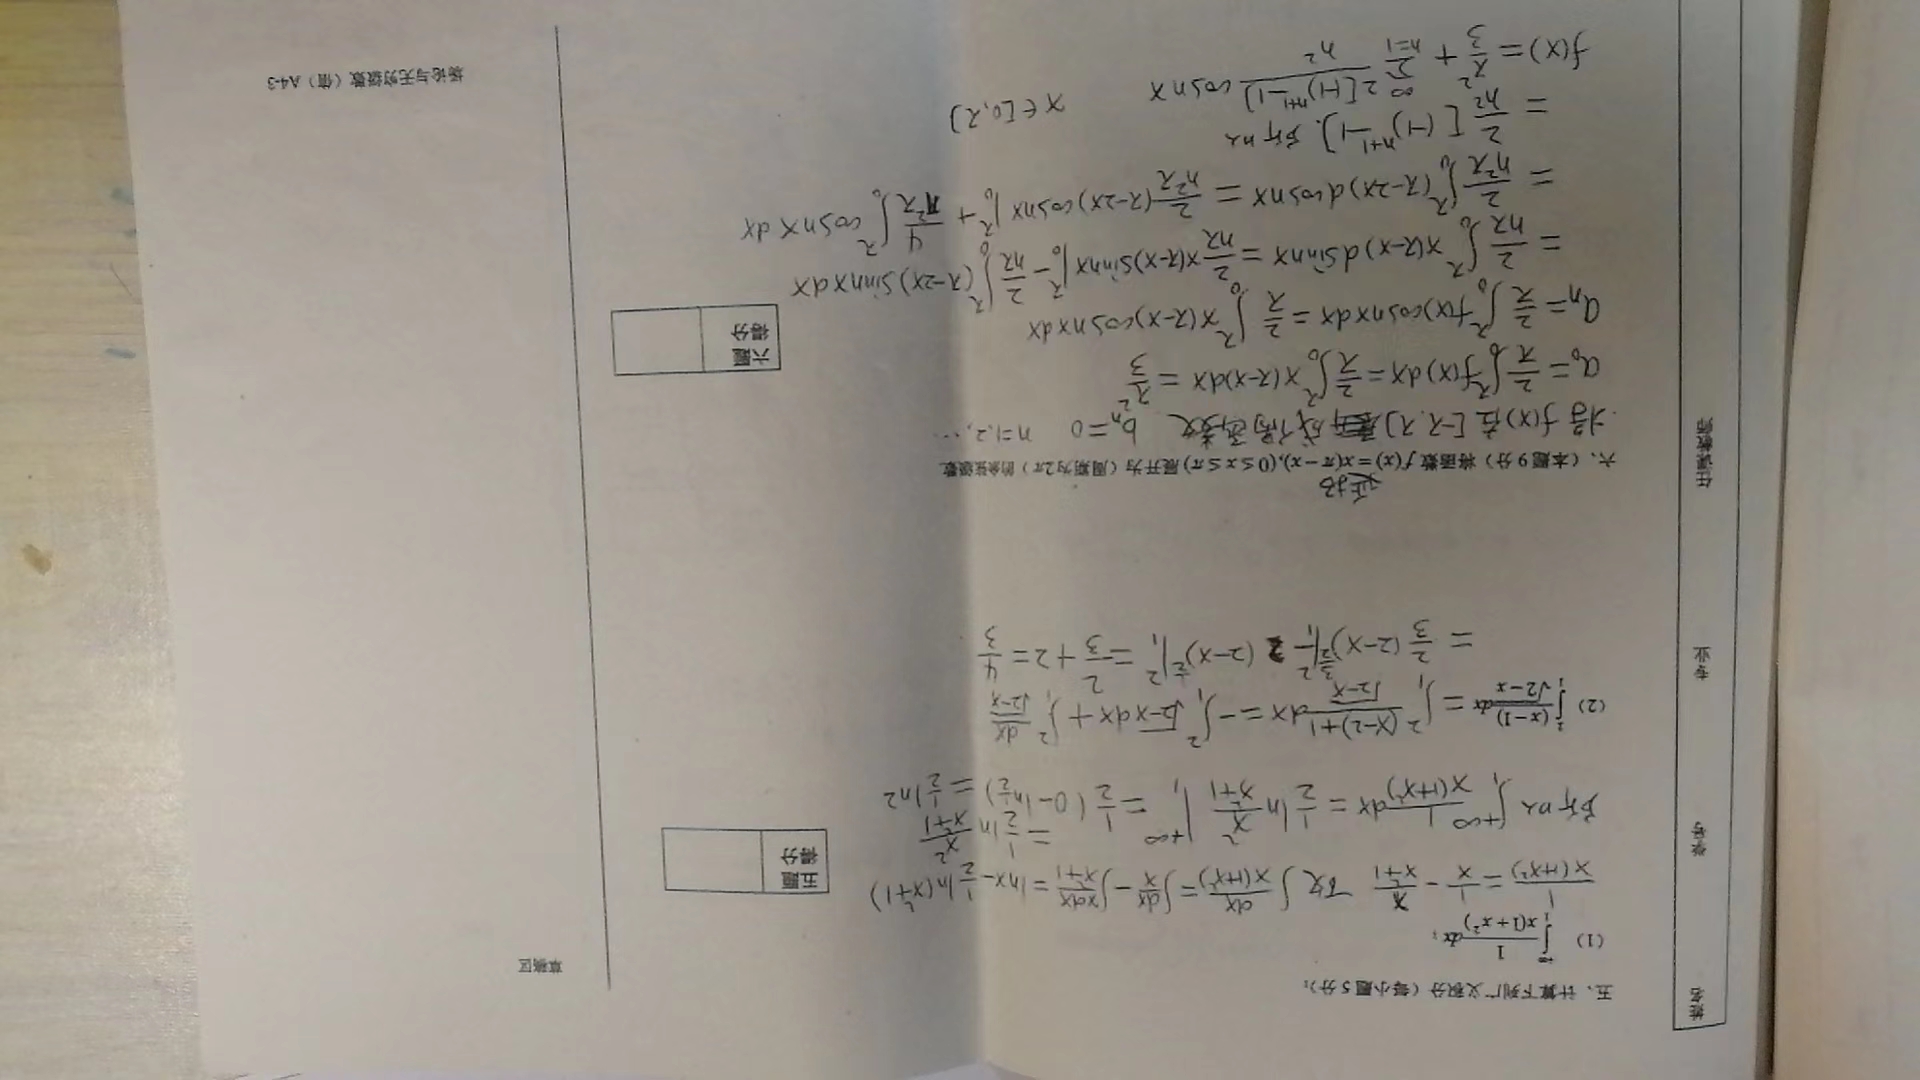 姓名
学号
专业
任课教师
五、计算下列广义积分（每小题5分）：
(1) ∫₁^{+∞} 1/(x(1+x²)) dx；
1/(x(1+x²)) = 1/x - x/(x²+1) 故 ∫ dx/(x(1+x²)) = ∫ dx/x - ∫ xdx/(x²+1) = lnx - 1/2 ln(x²+1)
= 1/2 ln x²/(x²+1)
所以 ∫₁^{+∞} 1/(x(1+x²)) dx = 1/2 ln x²/(x²+1) |₁^{+∞} = 1/2 (0 - ln 1/2) = 1/2 ln2
(2) ∫₁² (x-1)/√(2-x) dx = ∫₁² ((x-2)+1)/√(2-x) dx = -∫₁² √(2-x) dx + ∫₁² dx/√(2-x)
= 2/3 (2-x)^{3/2} |₁² - 2 (2-x)^{1/2} |₁² = -2/3 + 2 = 4/3
五题
得分
草稿区
延拓
六、（本题9分）将函数 f(x)=x(π-x),(0≤x≤π) 展开为（周期为2π）的余弦级数
将 f(x) 在 [-π,π] 成偶函数 bₙ=0 n=1,2,…
a₀ = 2/π ∫₀^π f(x)dx = 2/π ∫₀^π x(π-x)dx = π²/3
aₙ = 2/π ∫₀^π f(x)cosnxdx = 2/π ∫₀^π x(π-x)cosnxdx
= 2/(nπ) ∫₀^π x(π-x)dsinnx = 2/(nπ) x(π-x)sinnx |₀^π - 2/(nπ) ∫₀^π (π-2x)sinnxdx
= 2/(n²π) ∫₀^π (π-2x)dcosnx = 2/(n²π) (π-2x)cosnx |₀^π + 4/(n²π) ∫₀^π cosnxdx
= 2/n² [(-1)^{n+1}-1]. 所以
f(x) = π²/3 + ∑_{n=1}^∞ 2[(-1)^{n+1}-1]/n² cosnx x∈[0,π]
六题
得分
场论与无穷级数（信）A4-3